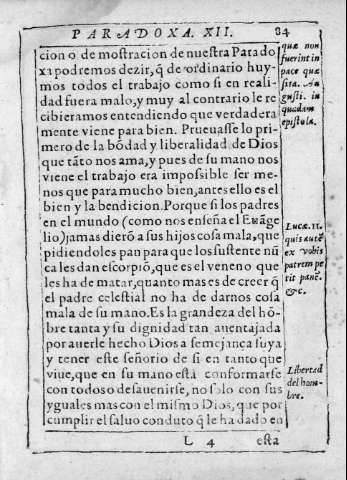 PARADOXA. XII. 84
cion o de mostracion de nuestra Parado
xa podremos dezir, q̃ de ordinario huy-
mos todos el trabajo como si en reali-
dad fuera malo, y muy al contrario le re
cibieramos entendiendo que verdadera
mente viene para bien. Prueuasse lo pri-
mero de la bõdad y liberalidad de Dios
que tãto nos ama, y pues de su mano nos
viene el trabajo era impossible ser me-
nos que para mucho bien, antes ello es el
bien y la bendicion. Porque si los padres
en el mundo (como nos enseña el Euãge
lio) jamas dierõ a sus hijos cosa mala, que
pidiendoles pan para que los sustente nũ
ca les dan escorpiõ, que es el veneno que
les ha de matar, quanto mas es de creer q̃
el padre celestial no ha de darnos cosa
mala de su mano. Es la grandeza del hõ-
bre tanta y su dignidad tan auentajada
por auerle hecho Dios a semejança suya
y tener este señorio de si en tanto que
viue, que en su mano està conformarse
con todos o desauenirse, no solo con sus
yguales mas con el mismo Dios, que por
cumplir el saluo conduto q̃ le ha dado en
L 4 esta
quæ non
fuerint in
pace quæ
sita. Au
gusti. in
quadam
epistola.
Lucæ. 11.
quis autẽ
ex vobis
patrem pe
tit panẽ.
&c.
Libertad
del hom-
bre.